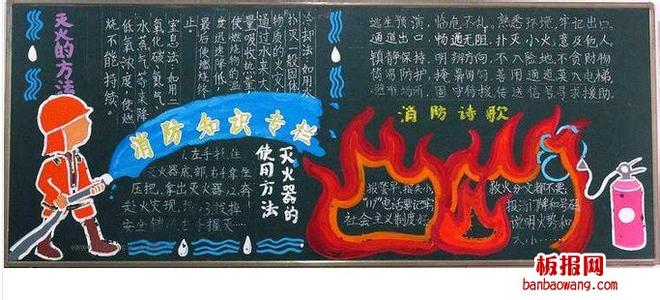 灭火的方法
冷却法如用水
扑灭一般固体
物质的火灾,
通过水来大
量吸收热量
使燃烧物的温
度迅速降低,
最后使燃烧终
窒息法:如用二
氧化碳、氮气、
水蒸气等来降
低氧浓度,使燃
烧不能持续。
消防知识专栏
灭火器的
使用方法
1.左手托住
灭火器底部,右手拿住
压把,拿出灭火器 2.奔
赴火灾现
逃生预演,临危不乱。熟悉环境,牢记出口。
通道出口,畅通无阻。扑灭小火,惠及他人。
镇静保持,明辨方向,不入险地,不贪财物
简易防护,掩鼻匍匐。善用通道,莫入电梯
避难场所,固守待援 传送信号寻求援助
消防诗歌
报警早,损失小,
"119"电话要记牢
社会主义制度好
救火分文都不要,
报清门牌和号码
说明火势和
大小
板报网
banbaowang.com